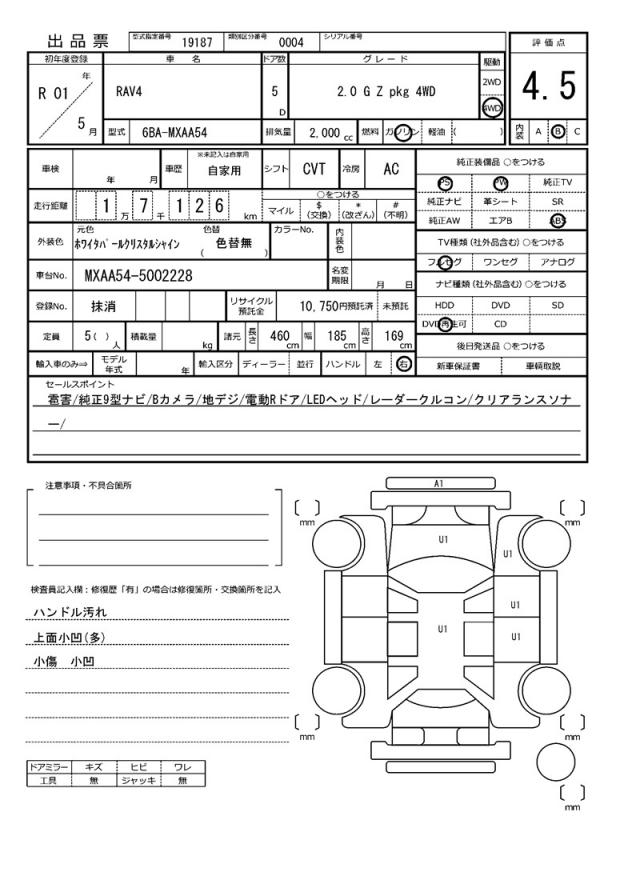 出品票 型式指定番号 19187 類別区分番号 0004 シリアル番号
評価点
4.5
内装 A B C
初年度登録 車名 ドア数 グレード 駆動
R 01 年 5 月 RAV4 5 D 2.0 G Z pkg 4WD 2WD 4WD
型式 6BA-MXAA54 排気量 2,000 cc 燃料 ガソリン 軽油 ( )
車検 年 月 車歴 ※未記入は自家用 自家用 シフト CVT 冷房 AC
走行距離 1 万 7 千 1 2 6 km ○をつける
マイル $ (交換) * (改ざん) # (不明)
外装色 元色 ホワイタパールクリスタルシャイン 色替 ( 色替無 ) カラーNo. 内装色
車台No. MXAA54-5002228 名変期限 月 日
登録No. 抹消 リサイクル預託金 10,750円預託済 未預託
定員 5( ) 人 積載量 kg 諸元 長さ 460 cm 幅 185 cm 高さ 169 cm
輸入車のみ⇒ モデル年式 年 輸入区分 ディーラー 並行 ハンドル 左 右
純正装備品 ○をつける
PS PW 純正TV
純正ナビ 革シート SR
純正AW エアB ABS
TV種類(社外品含む) ○をつける
フルセグ ワンセグ アナログ
ナビ種類(社外品含む) ○をつける
HDD DVD SD
DVD再生可 CD
後日発送品 ○をつける
新車保証書 車輌取説
セールスポイント
雹害/純正9型ナビ/Bカメラ/地デジ/電動Rドア/LEDヘッド/レーダークルコン/クリアランスソナ
ー/
注意事項・不具合箇所
検査員記入欄:修復歴「有」の場合は修復箇所・交換箇所を記入
ハンドル汚れ
上面小凹(多)
小傷 小凹
ドアミラー キズ ヒビ ワレ
工具 無 ジャッキ 無
A1
mm
mm
U1
U1
U1
U1
U1
mm
mm
mm